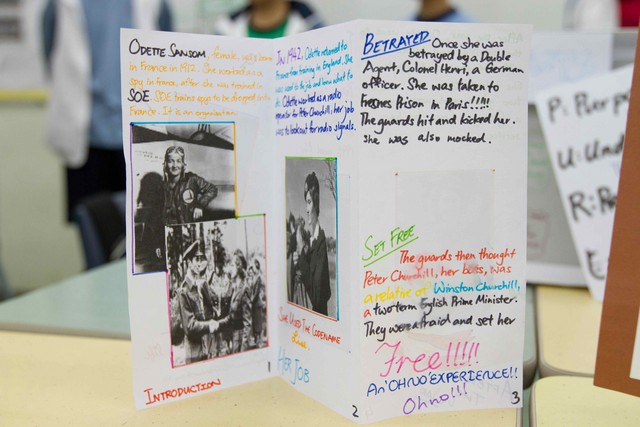 ODETTE SANSOM, female, was born
in France in 1912. She worked as a
spy in France, after she was trained in
SOE. SOE trains spys to be dropped into
France. It is an organisation.
1
INTRODUCTION
In 1942, Odette returned to
France from training in England. She
was sent to the job and knew what to
do. Odette worked as a radio
operator for Peter Churchill, her job
was to lookout for radio signals.
SHE USED THE CODENAME
HER JOB
2
BETRAYED Once she was
betrayed by a Double
Agent, Colonel Henri, a German
officer. She was taken to
Fresnes Prison in Paris!!!!!
The guards hit and kicked her.
She was also mocked.
SET FREE
The guards then thought
Peter Churchill, her boss, was
a relative of Winston Churchill,
a two term English Prime Minister.
They were afraid and set her
Free!!!!!
An 'OH NO' EXPERIENCE!!
Oh no!!!
3
P: Purp
U: Und
R: Re